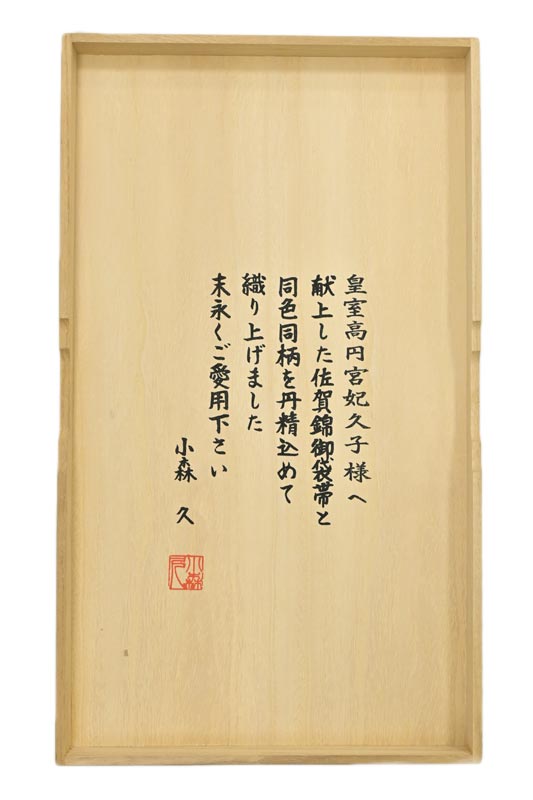 皇室高円宮妃久子様へ
献上した佐賀錦御袋帯と
同色同柄を丹精込めて
織り上げました
末永くご愛用下さい
小森 久
小森久